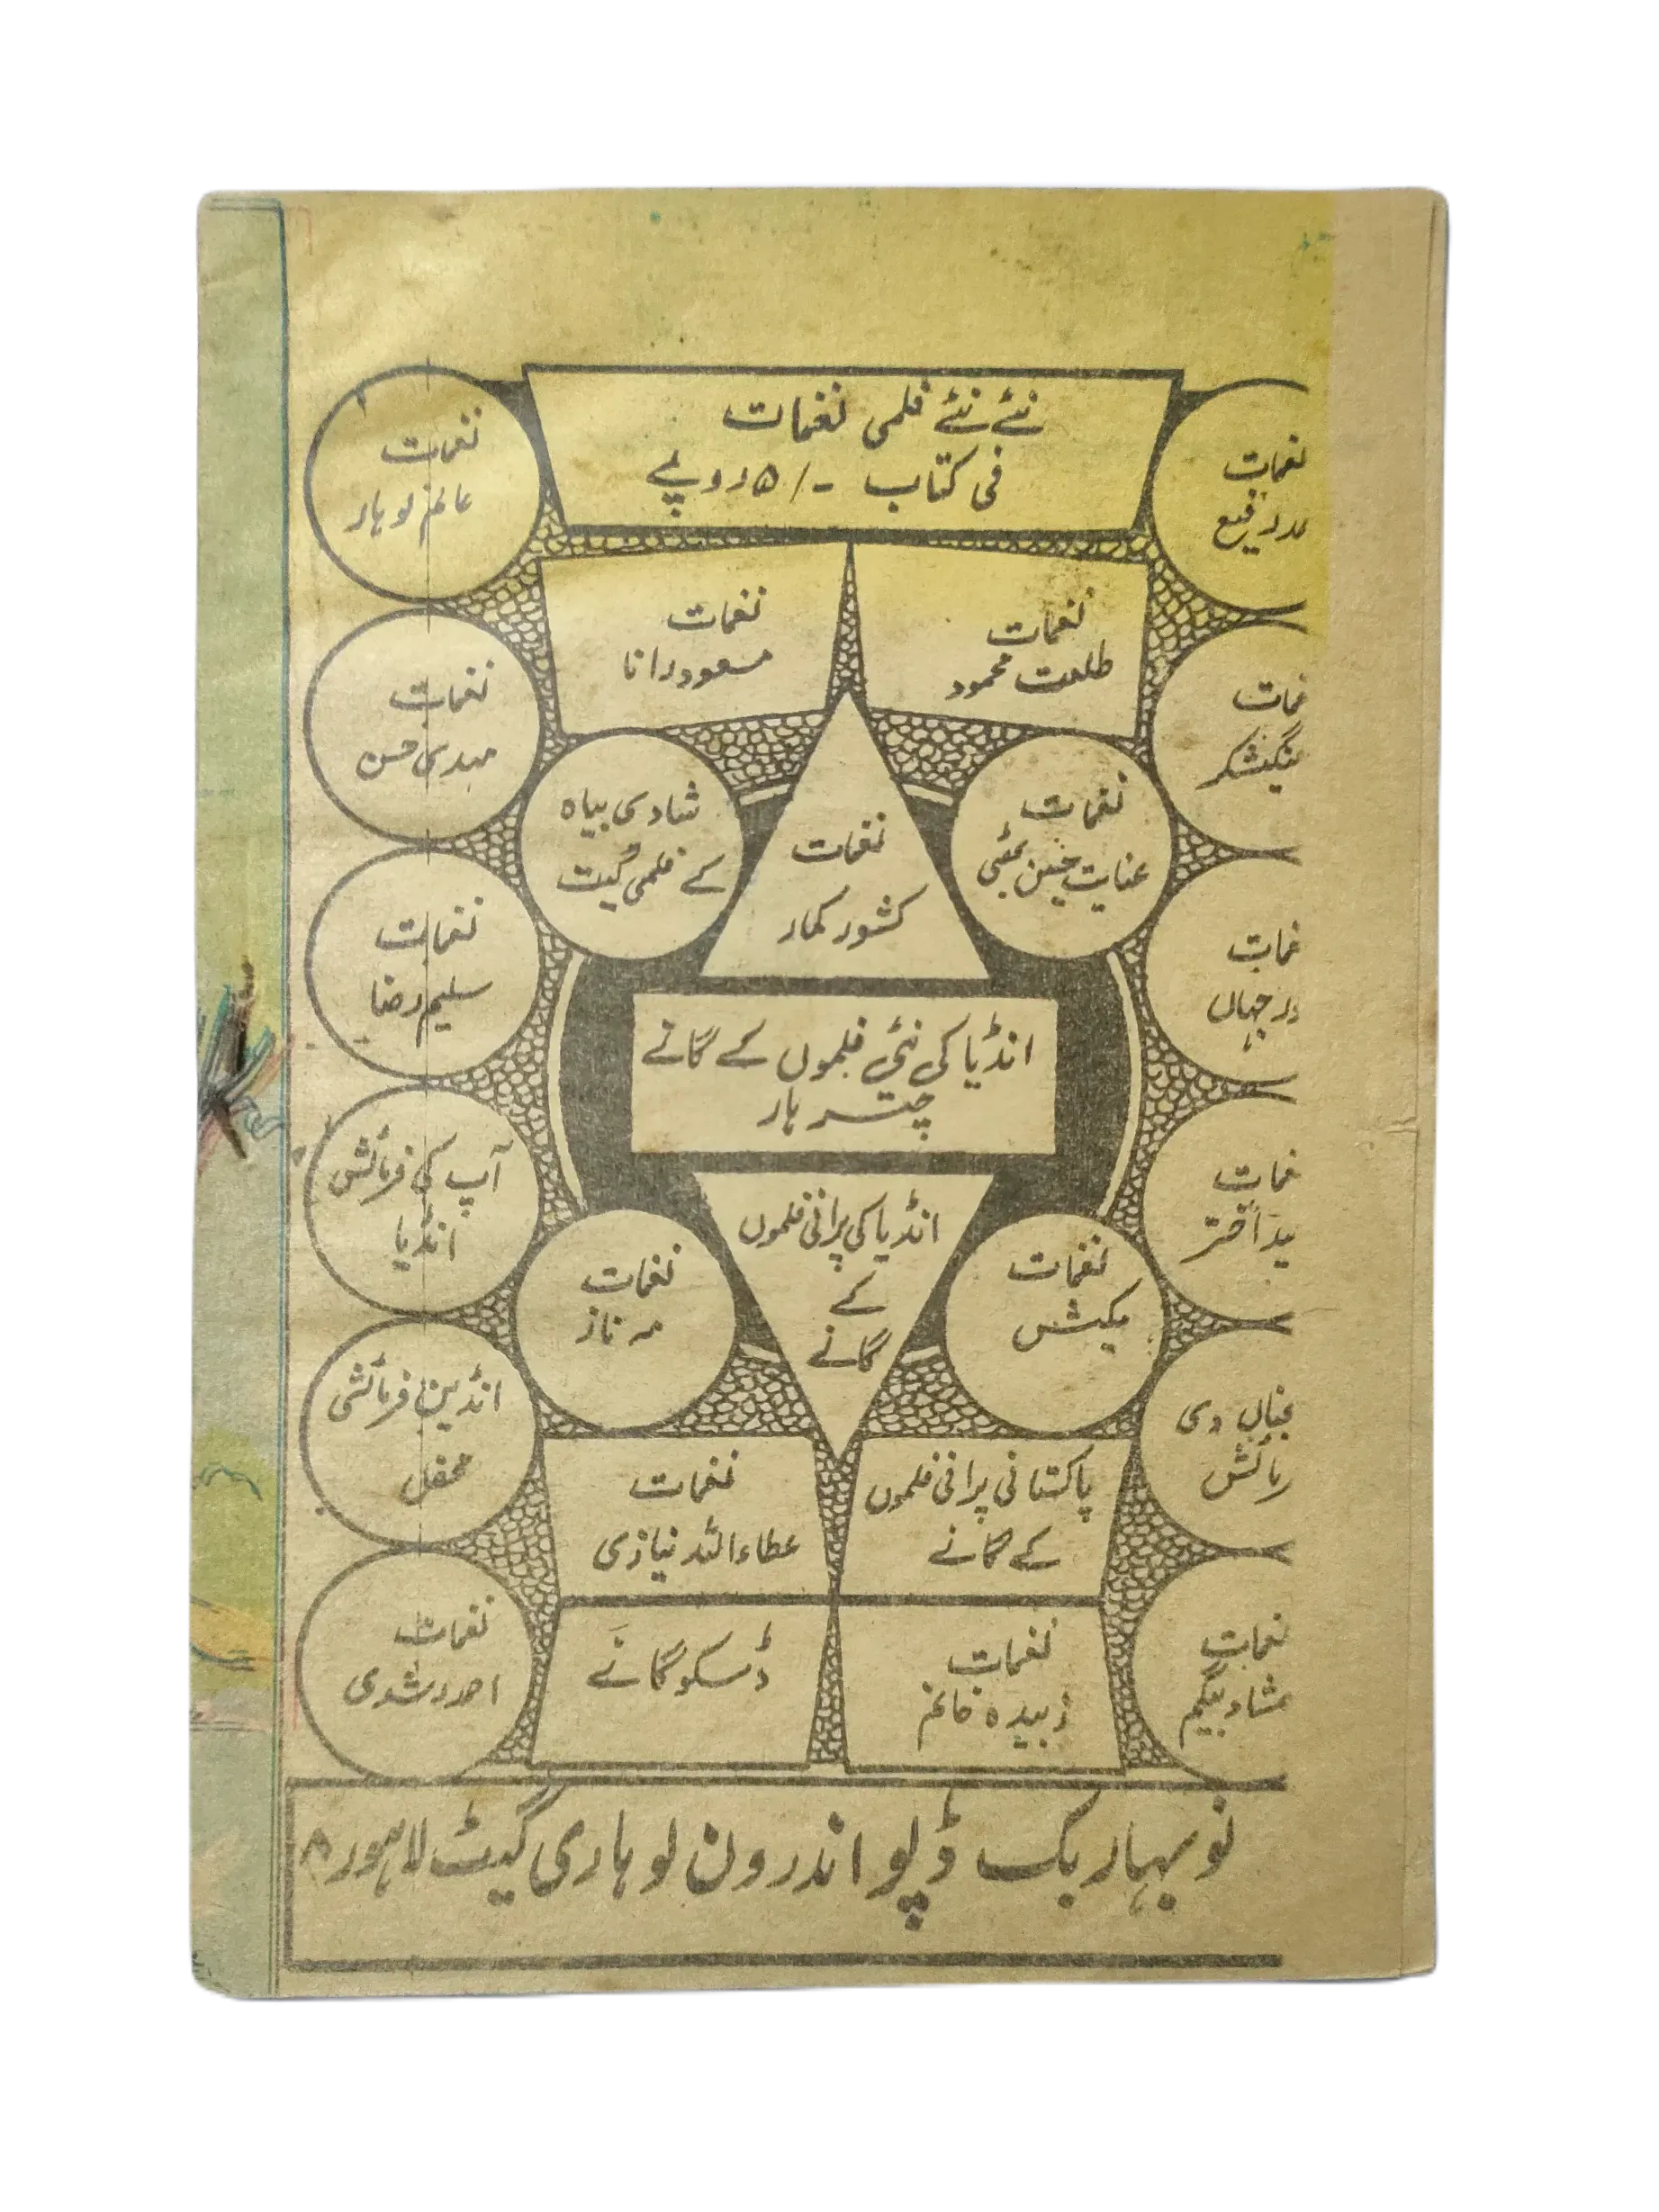 نئے نئے فلمی نغمات
فی کتاب -/۵ روپے
نغمات
عالم لوہار
نغمات
مد رفیع
نغمات
مسعود رانا
نغمات
طلعت محمود
نغمات
مہدی حسن
غمات
منگیشکر
شادی بیاہ
کے فلمی گیت
نغمات
کشور کمار
نغمات
عنایت حسین بھٹی
نغمات
سلیم رضا
غمات
در جہاں
انڈیا کی نئی فلموں کے گانے
چتر ہار
آپ کی فرمائش
انڈیا
غمات
ید اختر
انڈیا کی پرانی فلموں
کے
گانے
نغمات
مہ ناز
نغمات
مکیش
انڈین فرمائشی
محفل
دی
مائش
نغمات
عطاء اللہ نیازی
پاکستانی پرانی فلموں
کے گانے
نغمات
احمد رشدی
ڈسکو گانے
نغمات
زبیدہ خانم
نغمات
مشاد بیگم
نو بہار بک ڈپو اندرون لوہاری گیٹ لاہور ۸